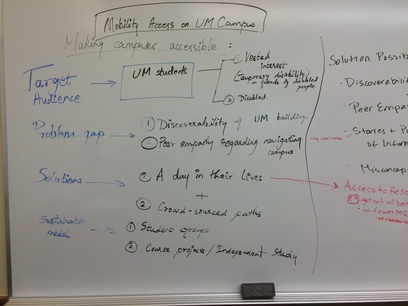 Mobility Access on UM Campus
Making campuses accessible :
Target
Audience
UM students
① Vested
Interest
(temporary disability,
friends of disabled
people)
② Disabled
Problem gap
① Discoverability of UM building
② Peer empathy regarding navigating
campus
Solutions
① A day in their lives
+
② Crowd-sourced paths
Sustainable
model
① Student groups
② Course projects / Independent Study
Solution Possib
Discoverabili
Peer Empa
Stories +
of Inform
Misconcep
Access to Reso